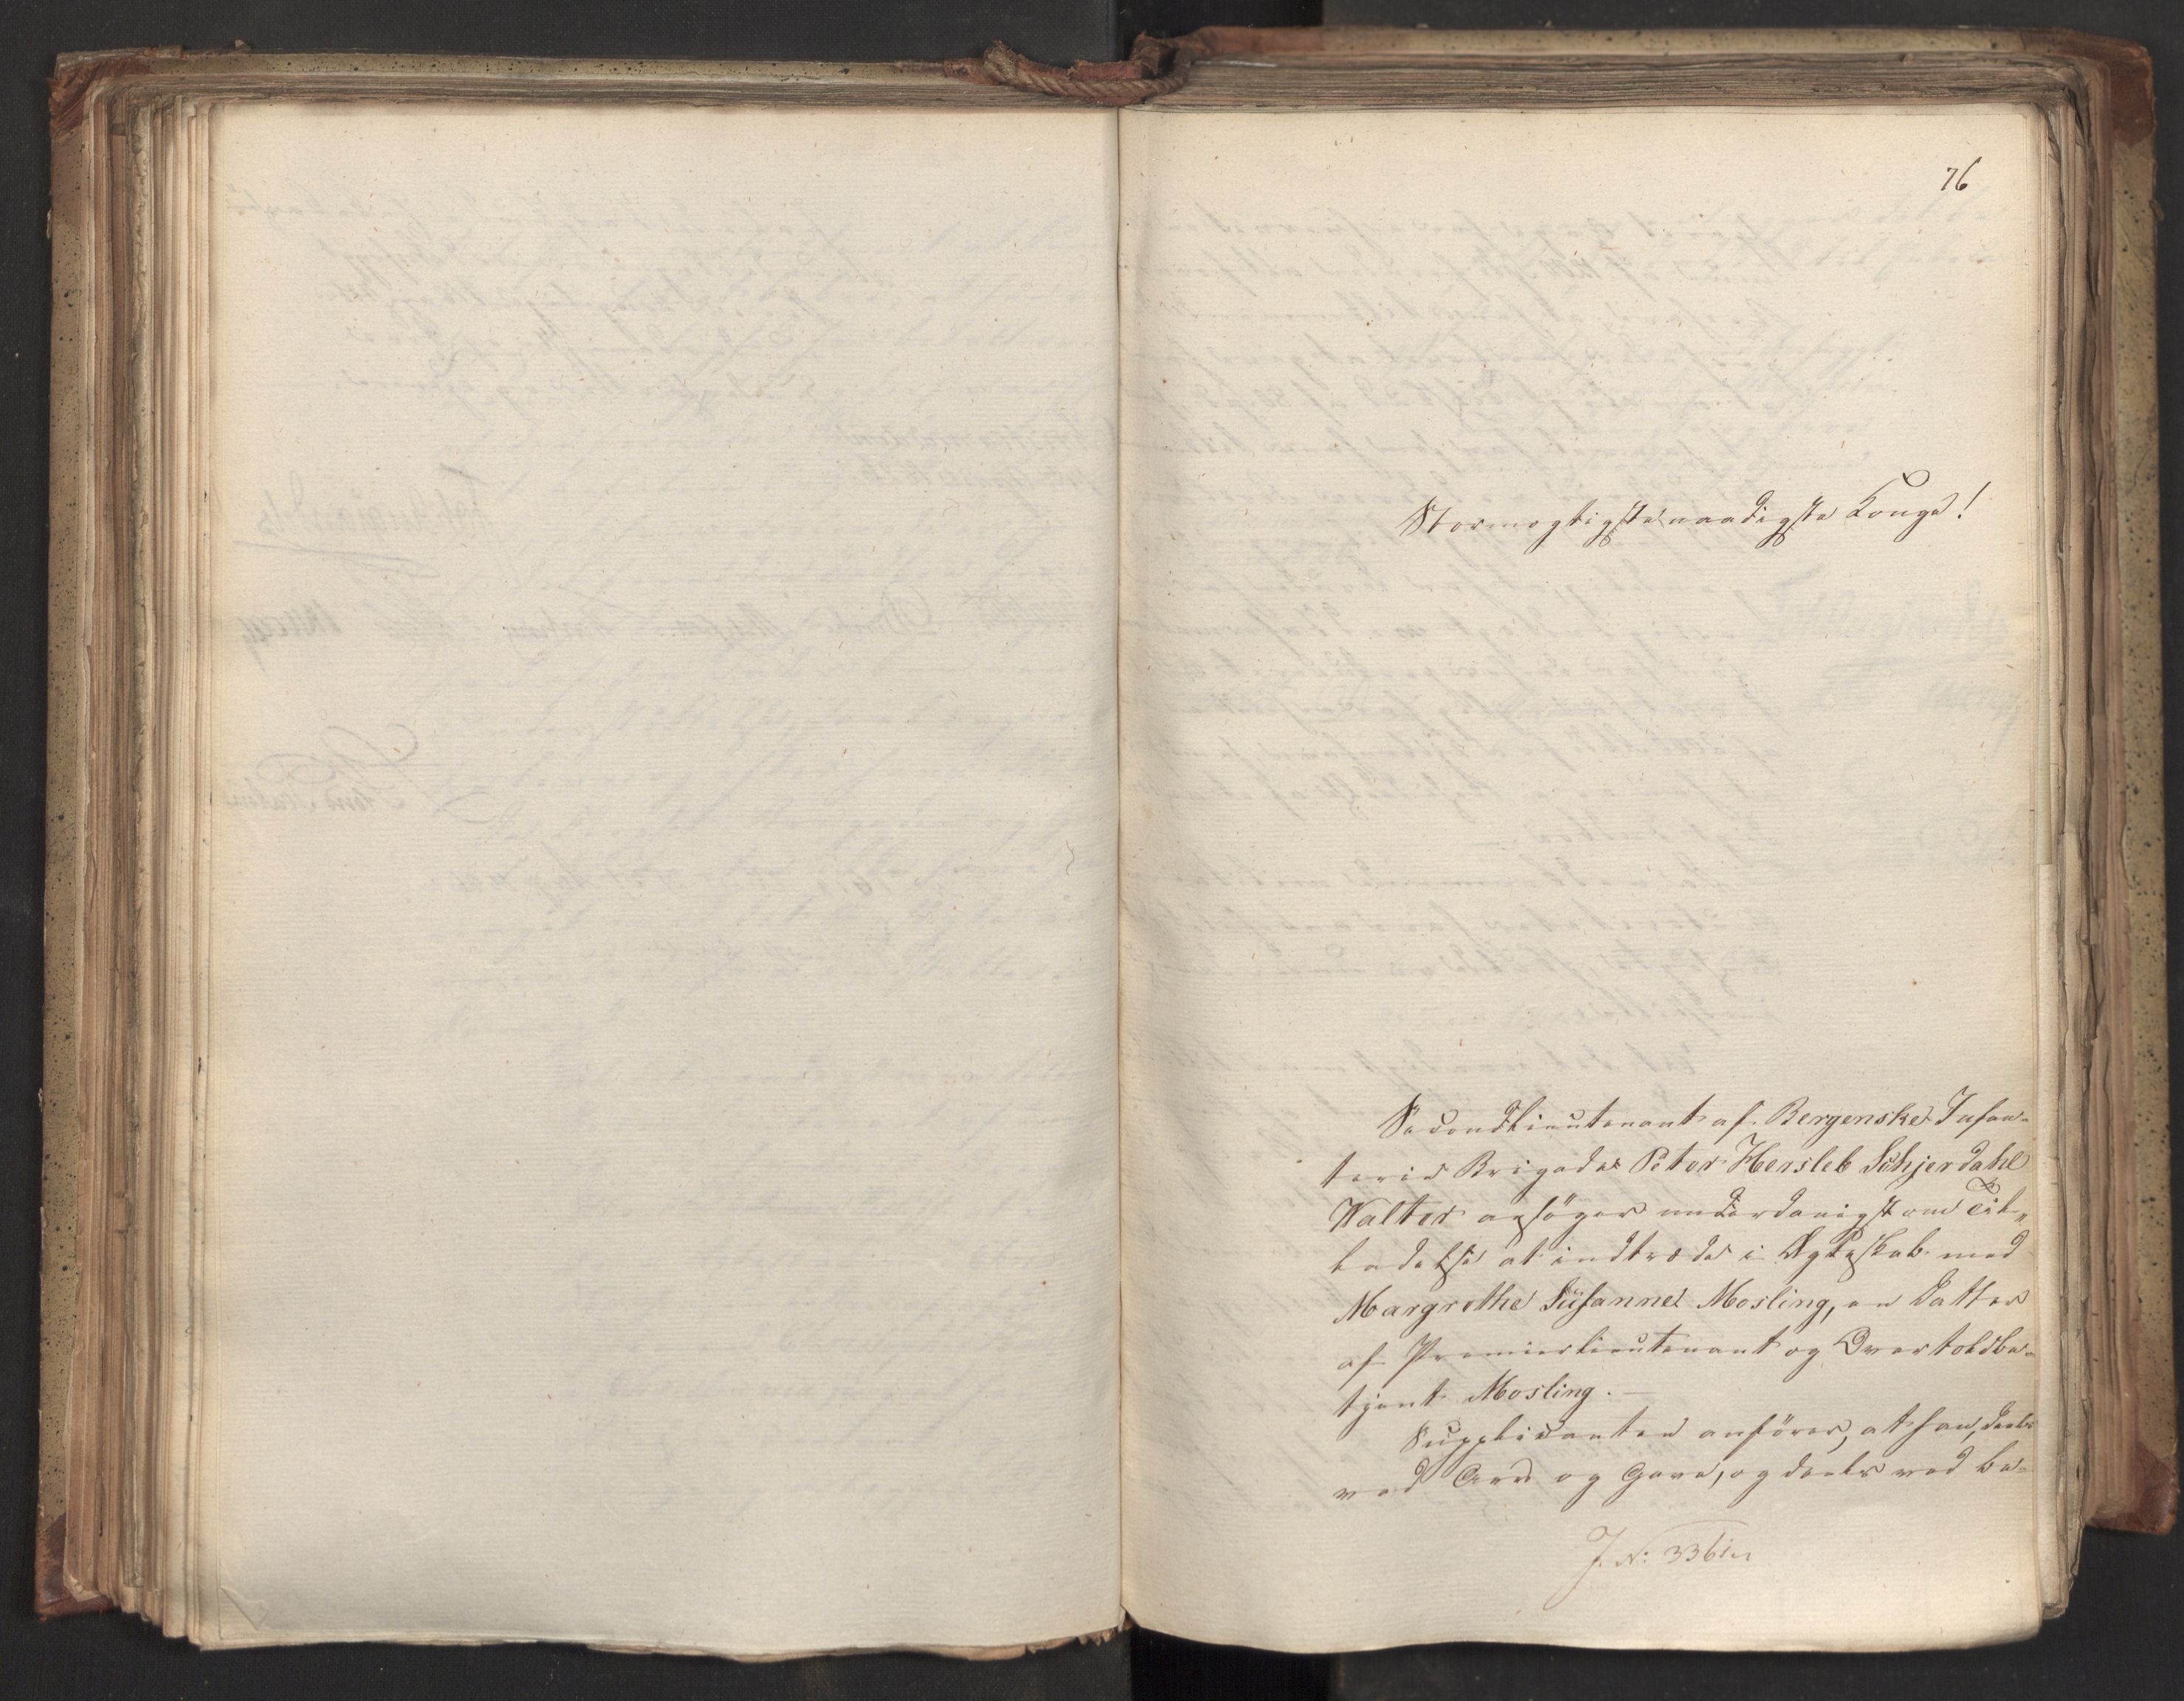 76
Stormægtigste naadigste Konge!
Secondlieutenant af Bergenske Infan-
terie Brigade Peter Hersleb Schjerdahl
Walter ansöger underdanigst om Til-
ladelse at indtræde i Ægteskab med
Margrethe Susanne Mosling, en Datter
af Premierlieutenant og Overtoldbe-
tjent Mosling. —
Supplicanten anförer, at han, deels
ved Arv og Gave, og deels ved be-
J. N: